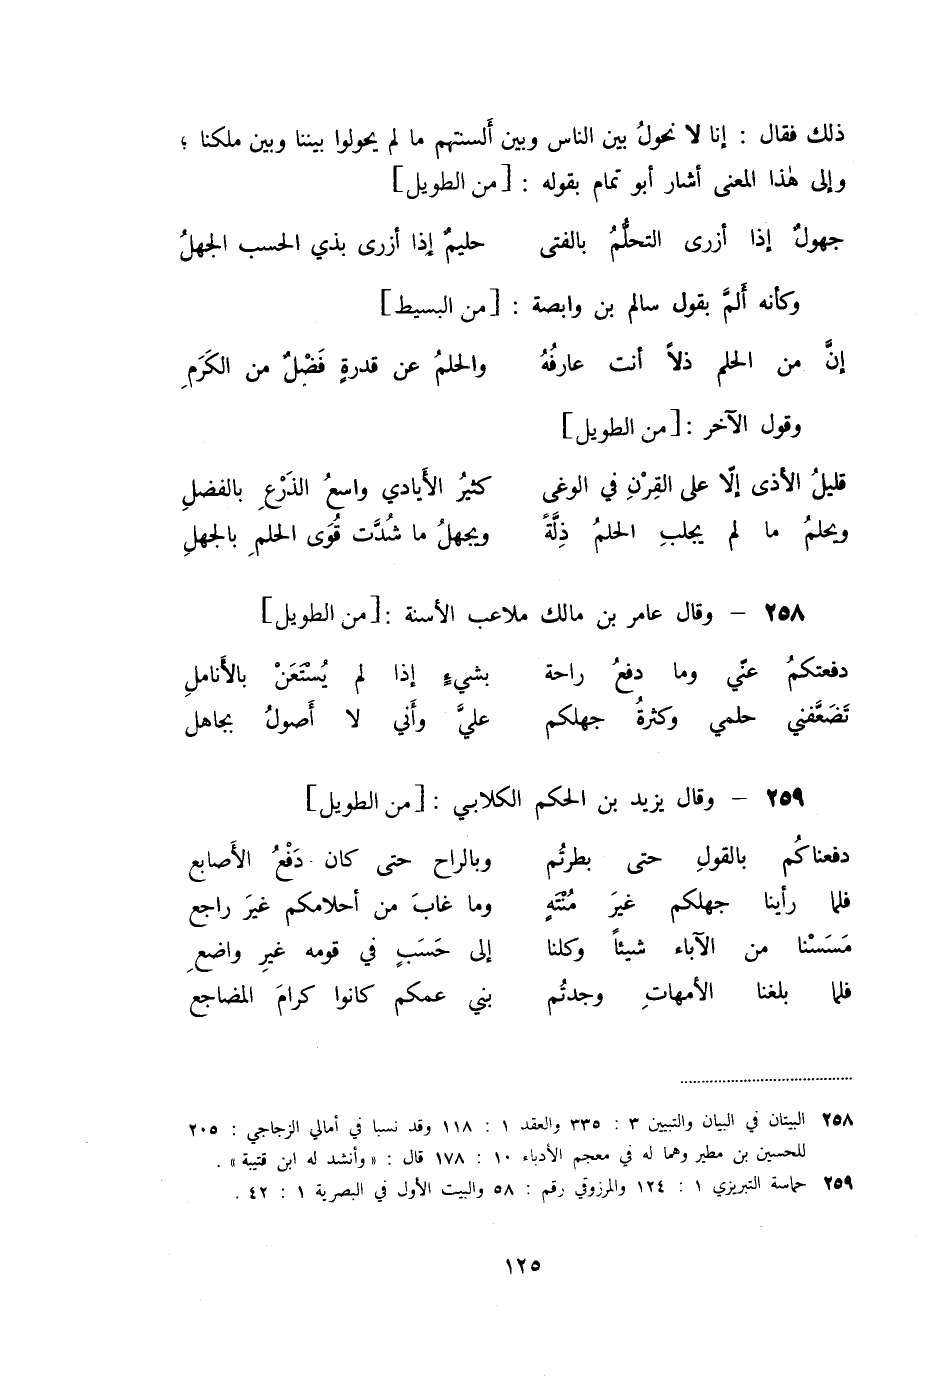 ذلك فقال : إنا لا نحولُ بين الناس وبين أَلسنتهم ما لم يحولوا بيننا وبين ملكنا ؛
وإلى هٰذا المعنى أشار أبو تمام بقوله : [من الطويل]
جهولٌ إذا أزرى التحلُّمُ بالفتى حليمٌ إذا أزرى بذي الحسب الجهلُ
وكأنه أَلمَّ بقول سالم بن وابصة : [من البسيط]
إنَّ من الحلم ذلاً أنت عارفُهُ والحلمُ عن قدرةٍ فَضْلٌ من الكَرَمِ
وقول الآخر : [من الطويل]
قليلُ الأذى إلّا على القِرْنِ في الوغى كثيرُ الأَيادي واسعُ الذَرْعِ بالفضلِ
ويحلمُ ما لم يجلبِ الحلمُ ذِلَّةً ويجهلُ ما شُدَّت قُوَى الحلمِ بالجهلِ
٢٥٨ – وقال عامر بن مالك ملاعب الأسنة : [من الطويل]
دفعتكمُ عنّي وما دفعُ راحة بشيءٍ إذا لم يُسْتَعَنْ بالأَناملِ
تَضَعَّفني حلمي وكثرةُ جهلكم عليَّ وأَني لا أَصولُ بجاهل
٢٥٩ – وقال يزيد بن الحكم الكلابي : [من الطويل]
دفعناكُم بالقولِ حتى بطرتُم وبالراح حتى كان دَفْعُ الأَصابع
فلما رأينا جهلكم غيرَ مُنْتَهٍ وما غابَ من أحلامكم غيرَ راجع
مَسَسْنا من الآباء شيئاً وكلنا إلى حَسَبٍ في قومه غيرِ واضعِ
فلما بلغنا الأمهاتِ وجدتُم بني عمكم كانوا كرامَ المضاجع
٢٥٨ البيتان في البيان والتبيين ٣ : ٣٣٥ والعقد ١ : ١١٨ وقد نسبا في أمالي الزجاجي : ٢٠٥
للحسين بن مطير وهما له في معجم الأدباء ١٠ : ١٧٨ قال : «وأنشد له ابن قتيبة» .
٢٥٩ حماسة التبريزي ١ : ١٢٤ والمرزوقي رقم : ٥٨ والبيت الأول في البصرية ١ : ٤٢ .
١٢٥